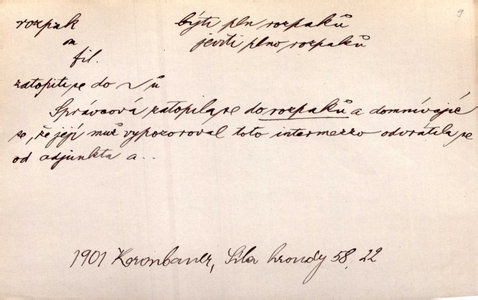 9
rozpak býti pln rozpaků
m jeviti plno rozpaků
fil.
zatopiti se do √ů
Správcová zatopila se do rozpaků a domnívajíc
se, že její muž vypozoroval toto intermezzo odvrátila se
od adjunkta a..
1901 Kronbauer, Síla hroudy 58, 22